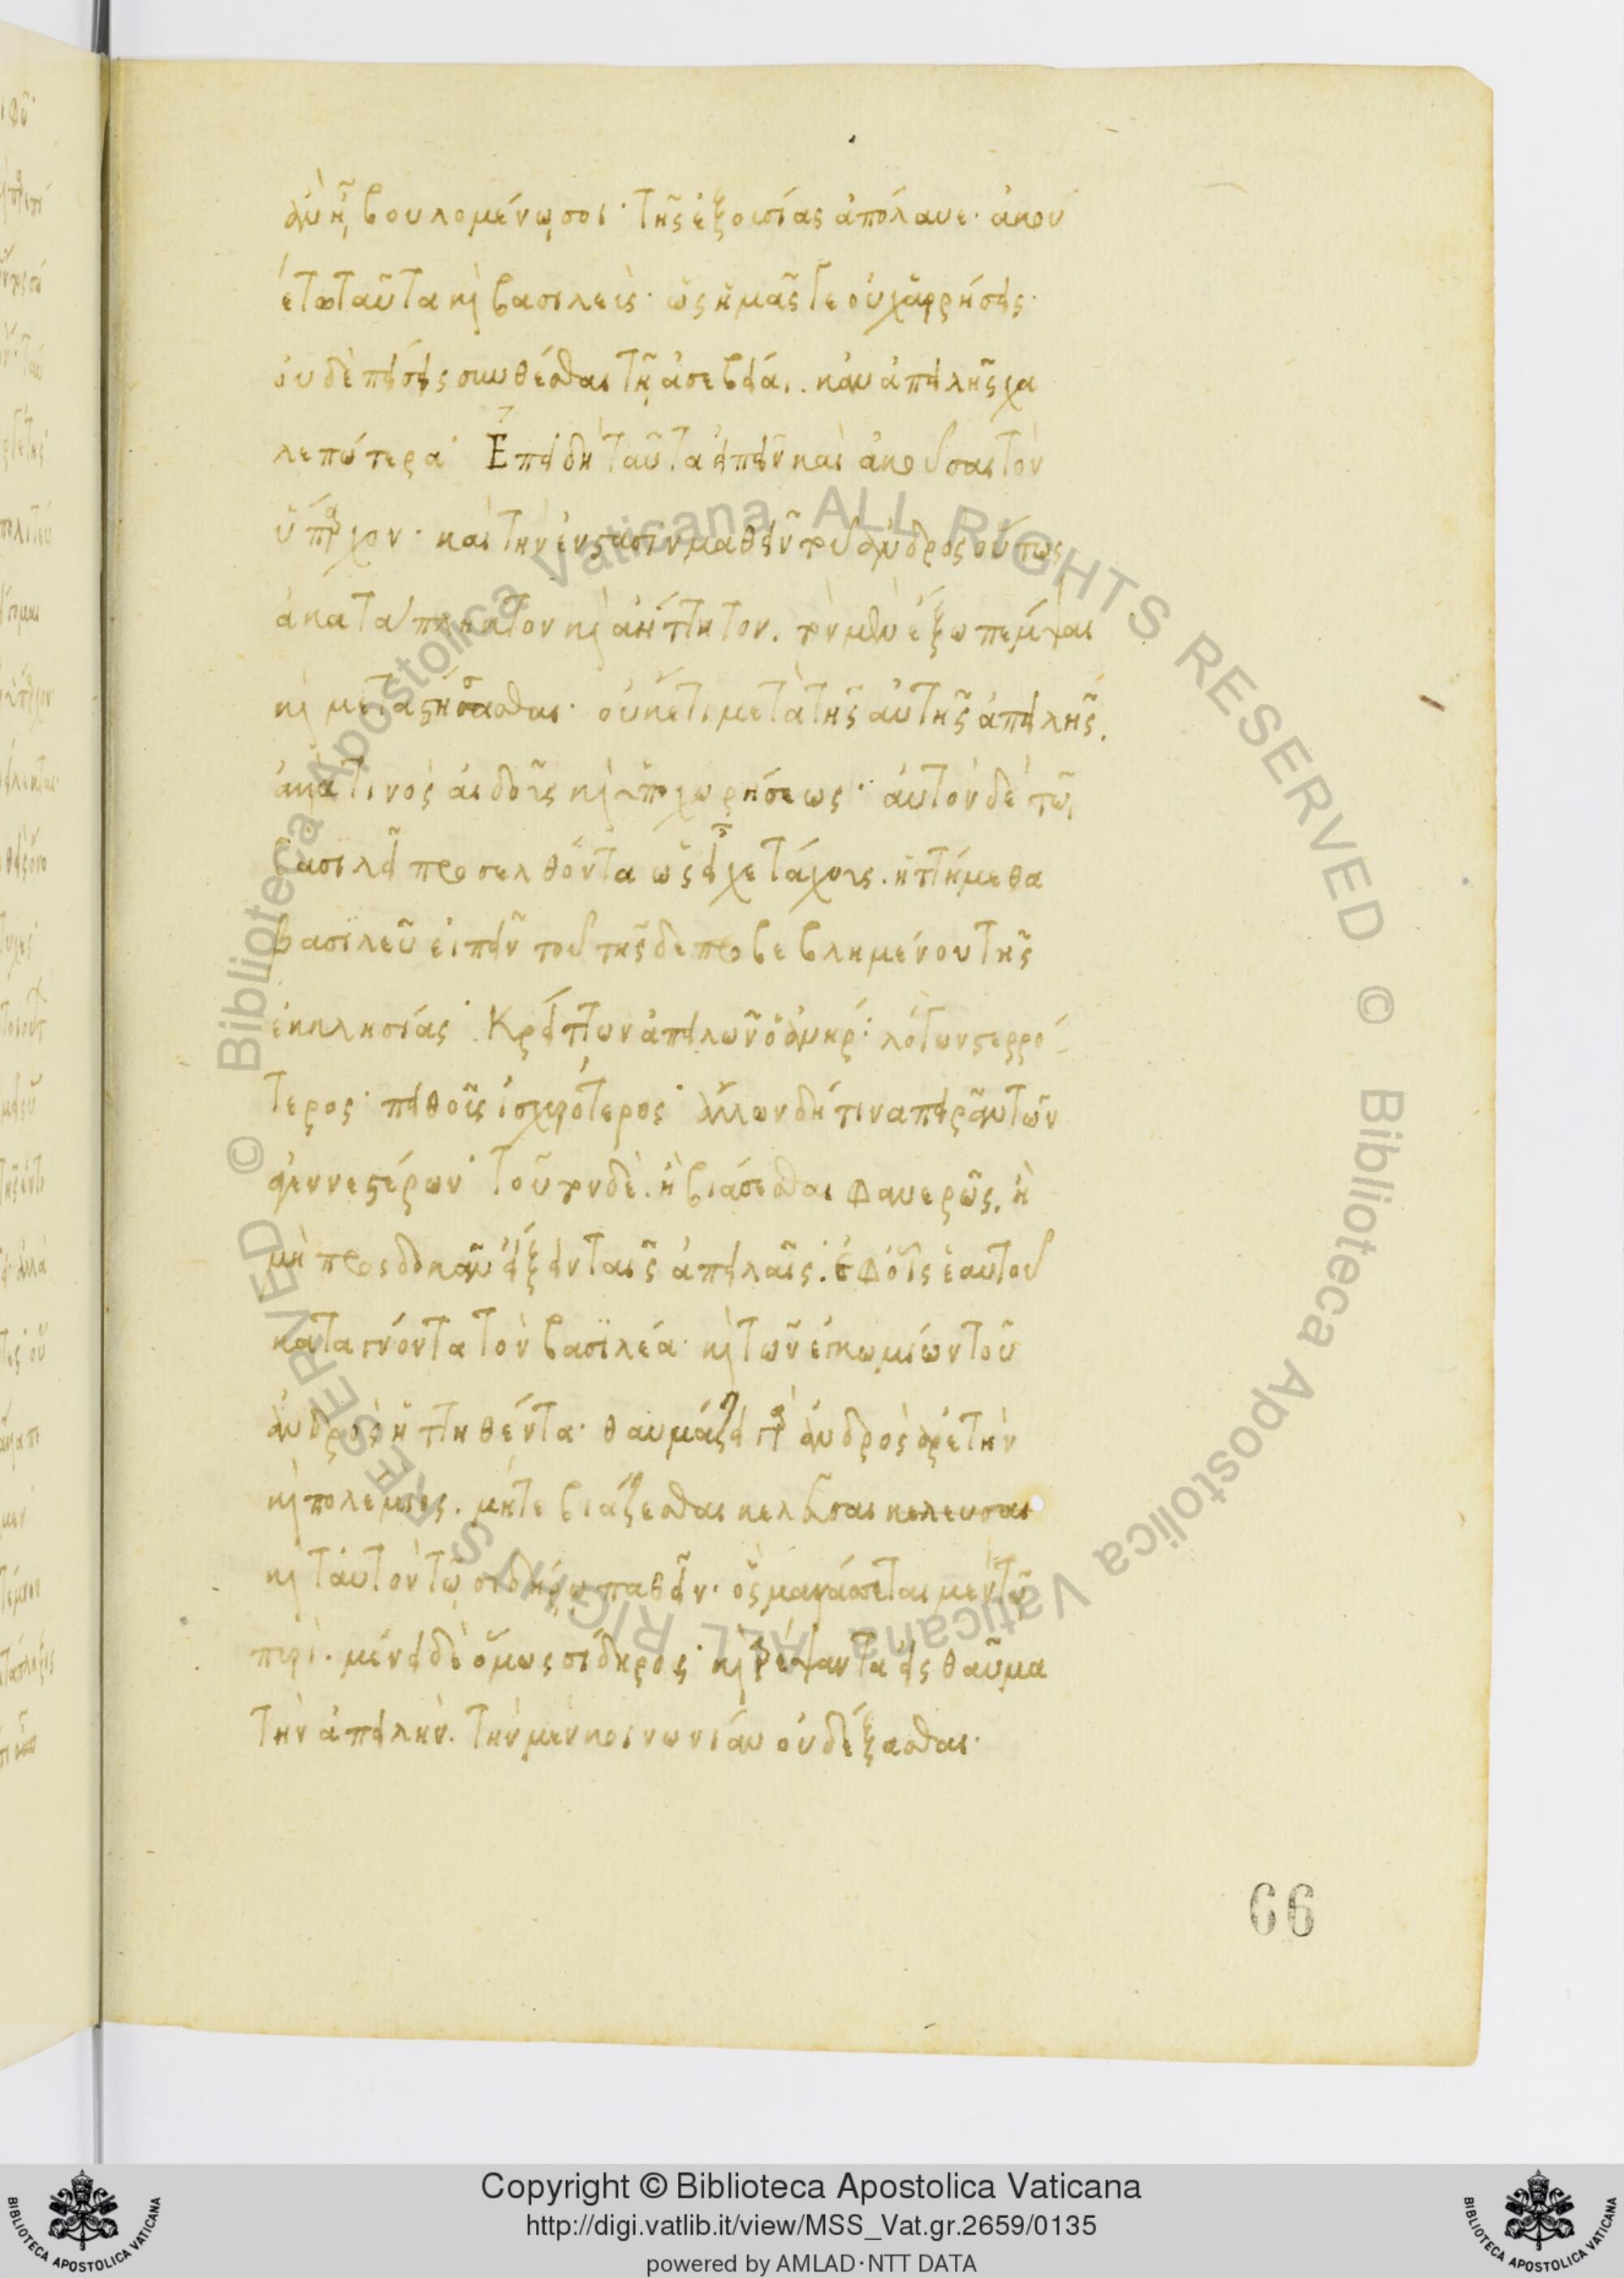 ἂν ᾖ βουλομένῳ σοι· τῆς ἐξουσίας ἀπόλαυε· ἀκου
έτω ταῦτα κὶ βασιλεὺς· ὡς ἡμᾶς γε οὐχ αἱρήσεις·
οὐδὲ πείσεις συνθέσθαι τῇ ἀσεβείᾳ. κἂν ἀπειλῇς χα
λεπώτερα· Ἐπειδὴ ταῦτα εἰπεῖν καὶ ἀκοῦσαι τὸν
ὕπαρχον· καὶ τὴν ἔνστασιν μαθεῖν τοῦ ἀνδρὸς οὕτως
ἀκατάπληκτον κὶ ἀήττητον. τὸν μὲν ἔξω πέμψαι
κὶ μεταστήσασθαι· οὐκέτι μετὰ τῆς αὐτῆς ἀπειλῆς.
ἀλλά τινος αἰδοῦς κὶ ὑποχωρήσεως· αὐτὸν δὲ τῷ
βασιλεῖ προσελθόντα ὡς εἶχε τάχους. ἡττήμεθα
βασιλεῦ εἰπεῖν τοῦ τῆσδε προβεβλημένου τῆς
ἐκκλησίας· Κρείττων ἀπειλῶν ὁ ἀνήρ· λόγων στερρό
τερος· πειθοῦς ἰσχυρότερος· ἄλλων δή τινα πειρατῶν
γεννεστέρων· τοῦτον δὲ. ἢ βιάσεσθαι φανερῶς. ἢ
μὴ προσδοκᾶν εἴξειν ταῖς ἀπειλαῖς. ἐφ' οἷς ἑαυτοῦ
καταγνόντα τὸν βασιλέα· κὶ τῶν ἐγκωμίων τοῦ
ἀνδρὸς ἡττηθέντα· θαυμάζει γὰρ ἀνδρὸς ἀρετὴν
κὶ πολέμιος. μήτε βιάζεσθαι κελεῦσαι κελευσαι
κὶ ταυτὸν τῷ σιδήρῳ παθεῖν· ὃς μαλάσσεται μὲν τῷ
πυρὶ. μένει δὲ ὅμως σίδηρος· κὶ τρέψαντα εἰς θαῦμα
τὴν ἀπειλὴν. τὴν μὲν κοινωνίαν οὐ δέξασθαι·
66
Copyright © Biblioteca Apostolica Vaticana
http://digi.vatlib.it/view/MSS_Vat.gr.2659/0135
powered by AMLAD·NTT DATA
BIBLIOTECA APOSTOLICA VATICANA
BIBLIOTECA APOSTOLICA VATICANA
© Biblioteca Apostolica Vaticana ALL RIGHTS RESERVED © Biblioteca Apostolica Vaticana ALL RIGHTS RESERVED